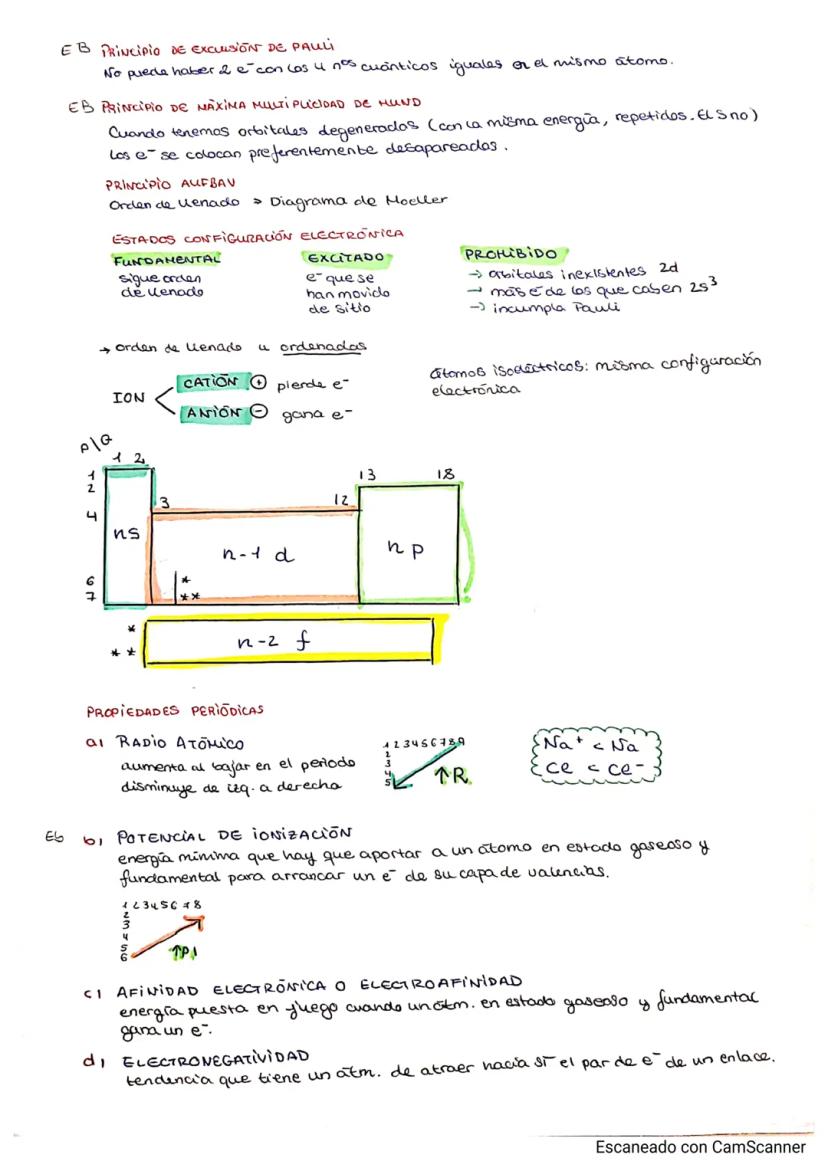 EB PRINCIPIO DE EXCLUSIÓN DE PAULI
No puede haber 2 e⁻ con los 4 nᵒˢ cuánticos iguales en el mismo átomo.
EB PRINCIPIO DE MÁXIMA MULTIPLICIDAD DE HUND
Cuando tenemos orbitales degenerados (con la misma energía, repetidos. El S no)
los e⁻ se colocan preferentemente desapareados.
PRINCIPIO AUFBAU
Orden de llenado > Diagrama de Moeller
ESTADOS CONFIGURACIÓN ELECTRÓNICA
FUNDAMENTAL EXCITADO PROHIBIDO
sigue orden e⁻ que se → orbitales inexistentes 2d
de llenado han movido → más e⁻ de los que caben 2s³
de sitio → incumpla Pauli
→ orden de llenado u ordenadas
ION
CATIÓN ⊕ pierde e⁻
ANIÓN ⊖ gana e⁻
átomos isoeléctricos: misma configuración
electrónica
P\G
1 2
13 18
3 12
1
2
4
6
7
ns
n-1 d
np
*
**
*
**
n-2 f
PROPIEDADES PERIÓDICAS
a) RADIO ATÓMICO
aumenta al bajar en el periodo
disminuye de izq. a derecha
1 2 3 4 5 6 7 8 9
2
3
4
5
↑R
Na⁺ < Na
Ce < Ce⁻
E6 b) POTENCIAL DE IONIZACIÓN
energía mínima que hay que aportar a un átomo en estado gaseoso y
fundamental para arrancar un e⁻ de su capa de valencias.
1 2 3 4 5 6 7 8
2
3
4
5
6
↑PI
c) AFINIDAD ELECTRÓNICA O ELECTROAFINIDAD
energía puesta en juego cuando un átm. en estado gaseoso y fundamental
gana un e⁻.
d) ELECTRONEGATIVIDAD
tendencia que tiene un átm. de atraer hacia sí el par de e⁻ de un enlace.
Escaneado con CamScanner